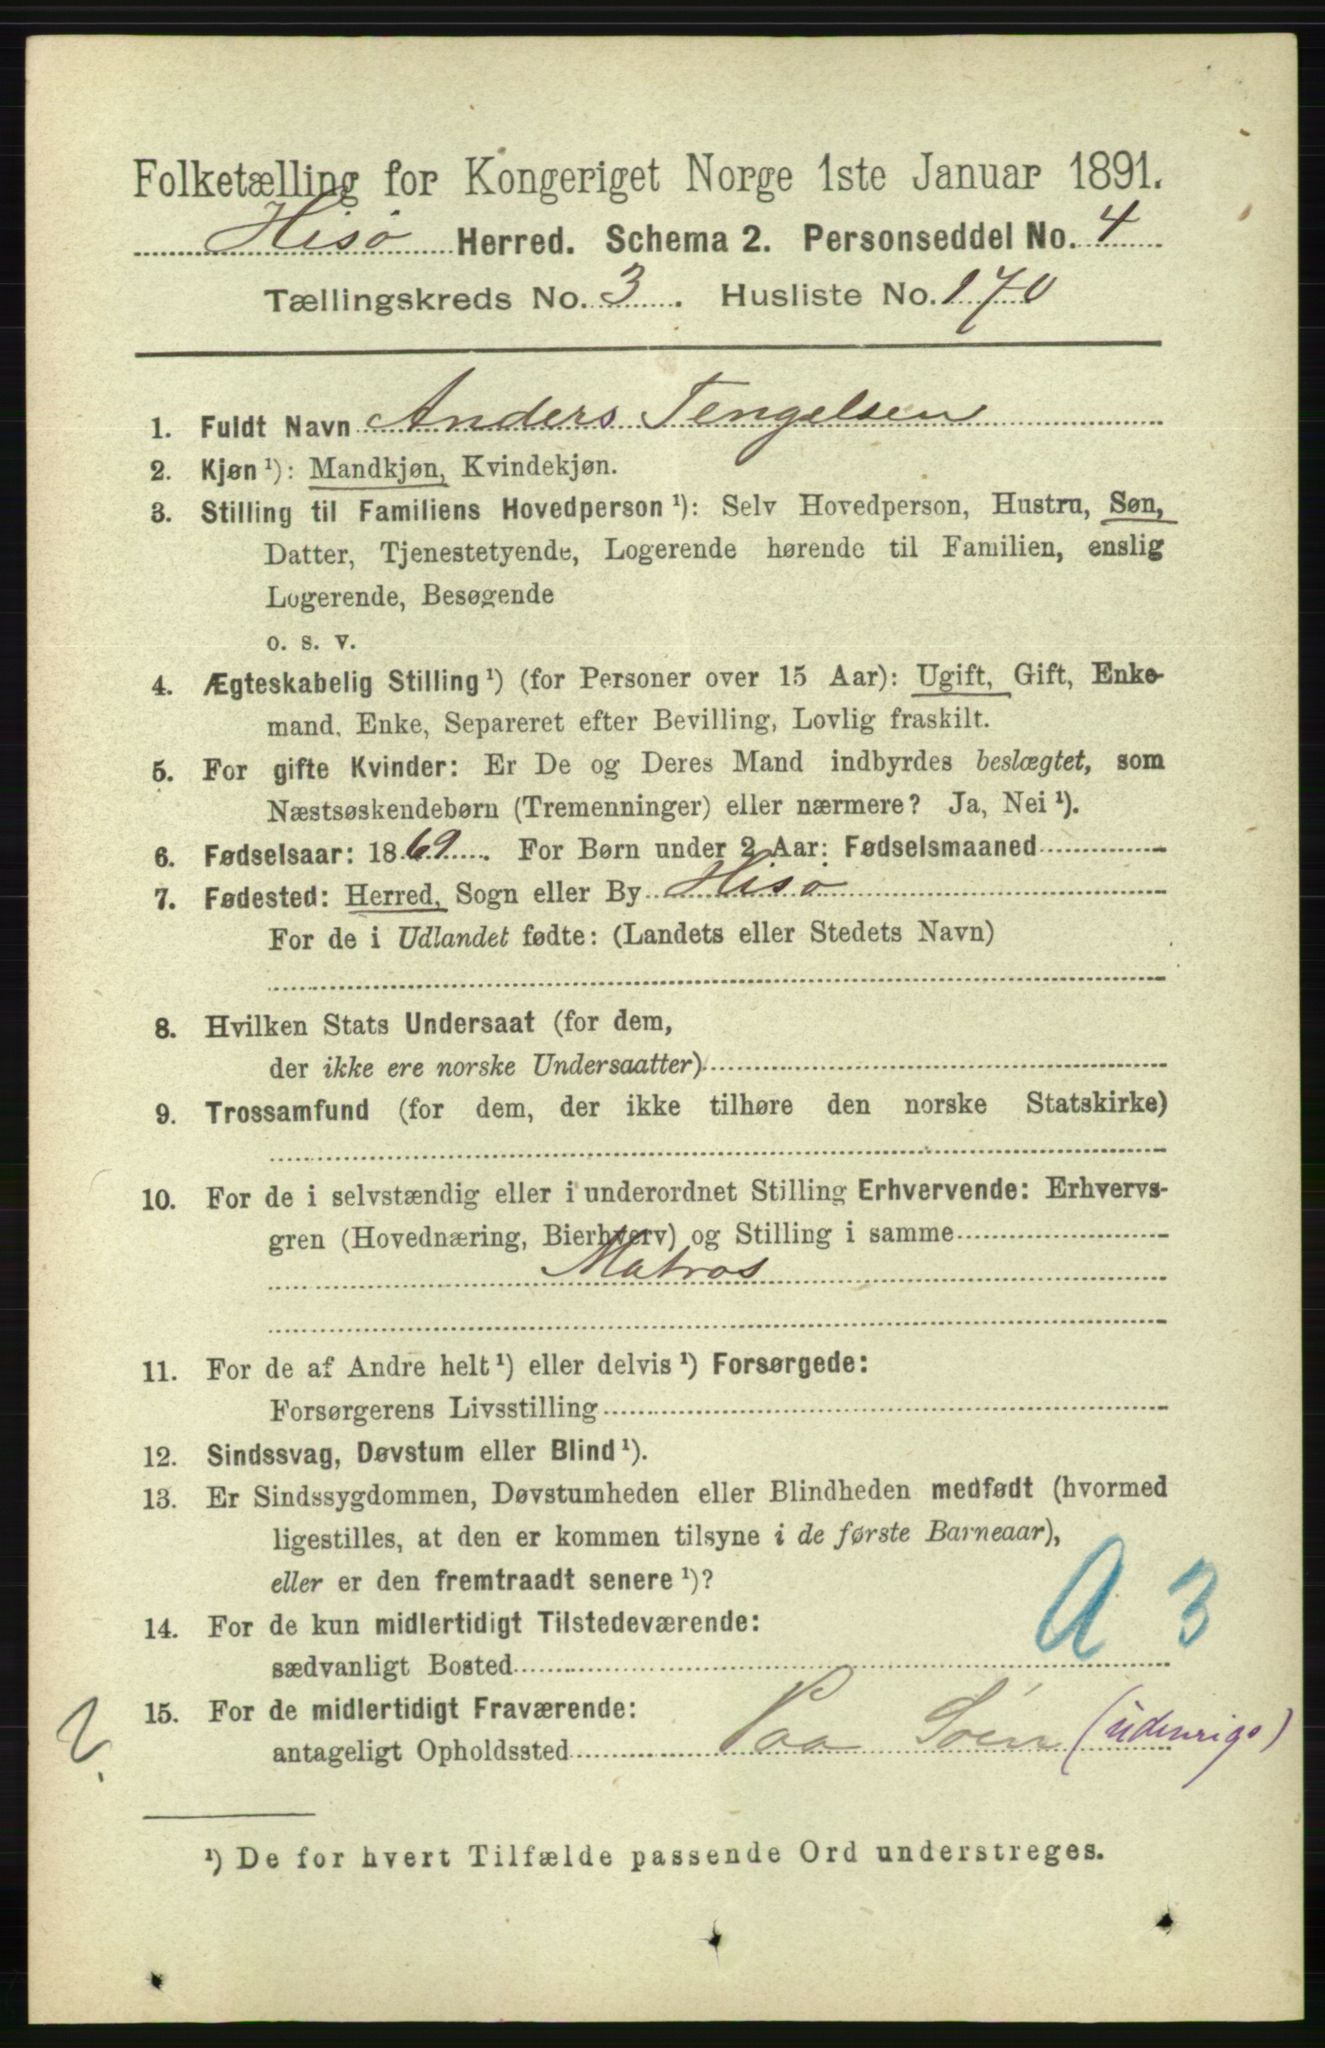 Folketælling for Kongeriget Norge 1ste Januar 1891.
Hisø Herred. Schema 2. Personseddel No. 4
Tællingskreds No. 3. Husliste No. 170
1. Fuldt Navn Anders Tengelsen
2. Kjøn ¹): Mandkjøn, Kvindekjøn.
3. Stilling til Familiens Hovedperson ¹): Selv Hovedperson, Hustru, Søn,
Datter, Tjenestetyende, Logerende hørende til Familien, enslig
Logerende, Besøgende
o. s. v.
4. Ægteskabelig Stilling ¹) (for Personer over 15 Aar): Ugift, Gift, Enke-
mand, Enke, Separeret efter Bevilling, Lovlig fraskilt.
5. For gifte Kvinder: Er De og Deres Mand indbyrdes beslægtet, som
Næstsøskendebørn (Tremenninger) eller nærmere? Ja, Nei ¹).
6. Fødselsaar: 1869. For Børn under 2 Aar: Fødselsmaaned
7. Fødested: Herred, Sogn eller By Hisø
For de i Udlandet fødte: (Landets eller Stedets Navn)
8. Hvilken Stats Undersaat (for dem,
der ikke ere norske Undersaatter)
9. Trossamfund (for dem, der ikke tilhøre den norske Statskirke)
10. For de i selvstændig eller i underordnet Stilling Erhvervende: Erhvervs-
gren (Hovednæring, Bierhverv) og Stilling i samme
Matros
11. For de af Andre helt ¹) eller delvis ¹) Forsørgede:
Forsørgerens Livsstilling
12. Sindssvag, Døvstum eller Blind ¹).
13. Er Sindssygdommen, Døvstumheden eller Blindheden medfødt (hvormed
ligestilles, at den er kommen tilsyne i de første Barneaar),
eller er den fremtraadt senere ¹)?
A 3
14. For de kun midlertidigt Tilstedeværende:
sædvanligt Bosted
15. For de midlertidigt Fraværende:
antageligt Opholdssted Paa Søen (udenrigs)
¹) De for hvert Tilfælde passende Ord understreges.